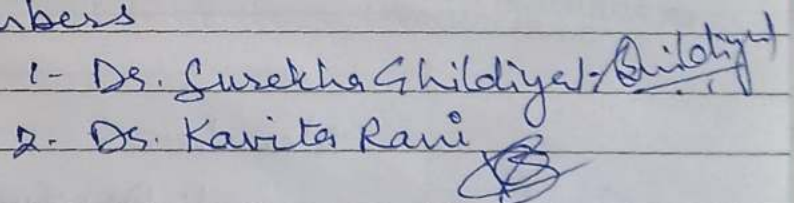 mbers
1- Dr. Surekha Ghildiyal - Ghildiyal
2. Dr. Kavita Rani